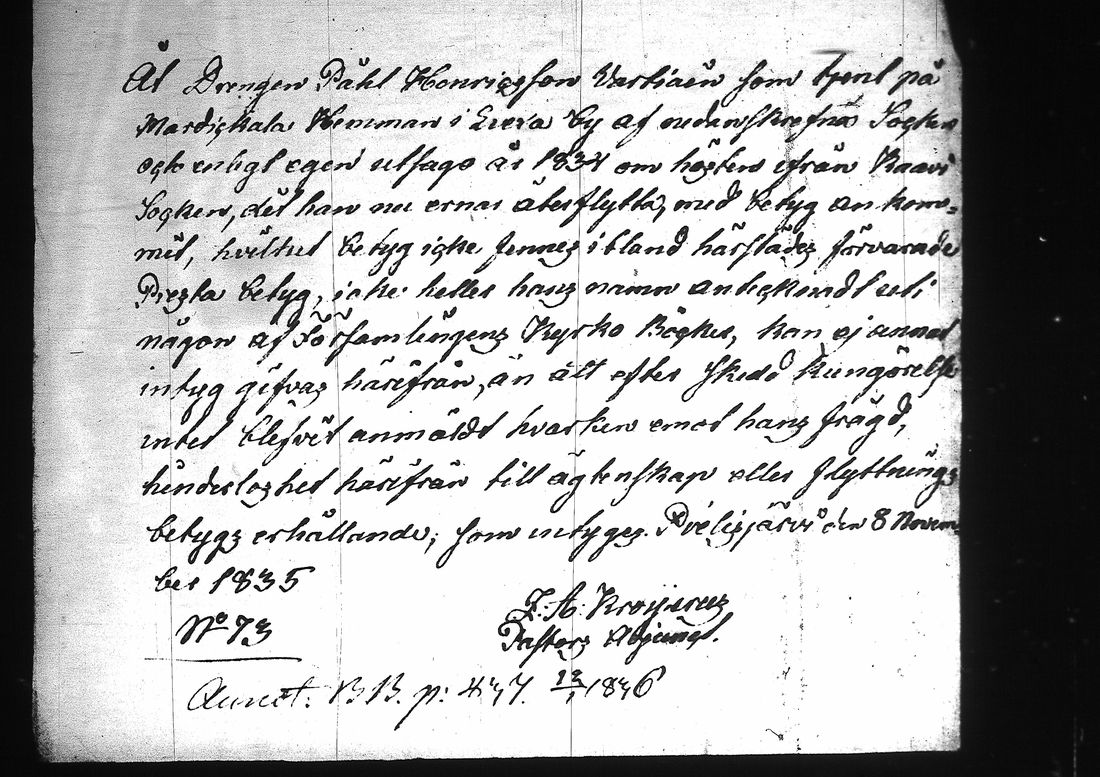 Åt Drengen Påhl Henricsson Vartiaén som tjent på
Mardickala Hemman i Evera by af nedanskrefne Socken
och enligt egen utsago år 1834 om hösten ifrån Kaavi
Socken, dit han nu ernar återflytta, med betyg ankom-
mit, hvilket betyg icke finnes ibland härstädes förvarade
Presta betyg, icke heller hans namn anteknadt uti
någon af Församlingens Kyrko Böcker, kan ej annat
intyg gifvas härifrån, än att efter skedd Kungörelse
intet blifvit anmäldt hvarken emot hans frägd,
hinderlöshet härifrån till ägtenskap eller flyttnings
betygs erhållande; som intyges. Pielisjärvi den 8 Novem-
ber 1835
No 73
Pastors Adjungt.
Annot. B.B. p: 437. 12/1 1836